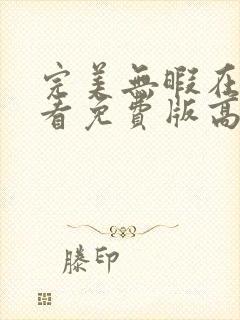 完美無暇在
看免費版高
滕印